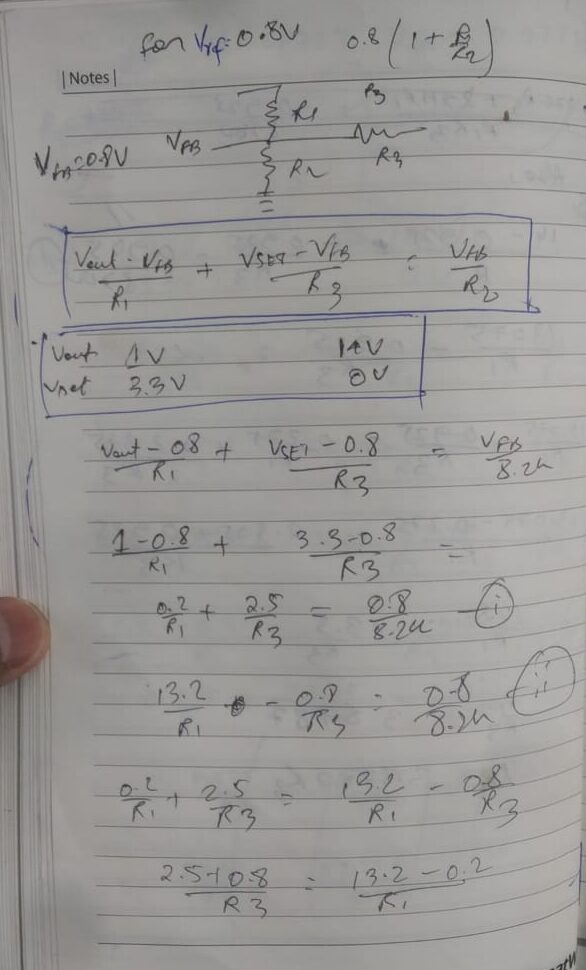 for Vrf = 0.8V 0.8 ( 1 + R1/R2 )
| Notes |
R3
R1
VFB
R3
Vfb=0.8V
R2
Vout - Vfb / R1 + VSET - Vfb / R3 = Vfb / R2
Vout 1V 14V
Vset 3.3V 0V
Vout - 0.8 / R1 + VSET - 0.8 / R3 = VFB / 8.2k
1 - 0.8 / R1 + 3.3 - 0.8 / R3 =
0.2 / R1 + 2.5 / R3 = 0.8 / 8.2k - i
13.2 / R1 - 0.8 / R3 = 0.8 / 8.2k - ii
0.2 / R1 + 2.5 / R3 = 13.2 / R1 - 0.8 / R3
2.5 + 0.8 / R3 = 13.2 - 0.2 / R1